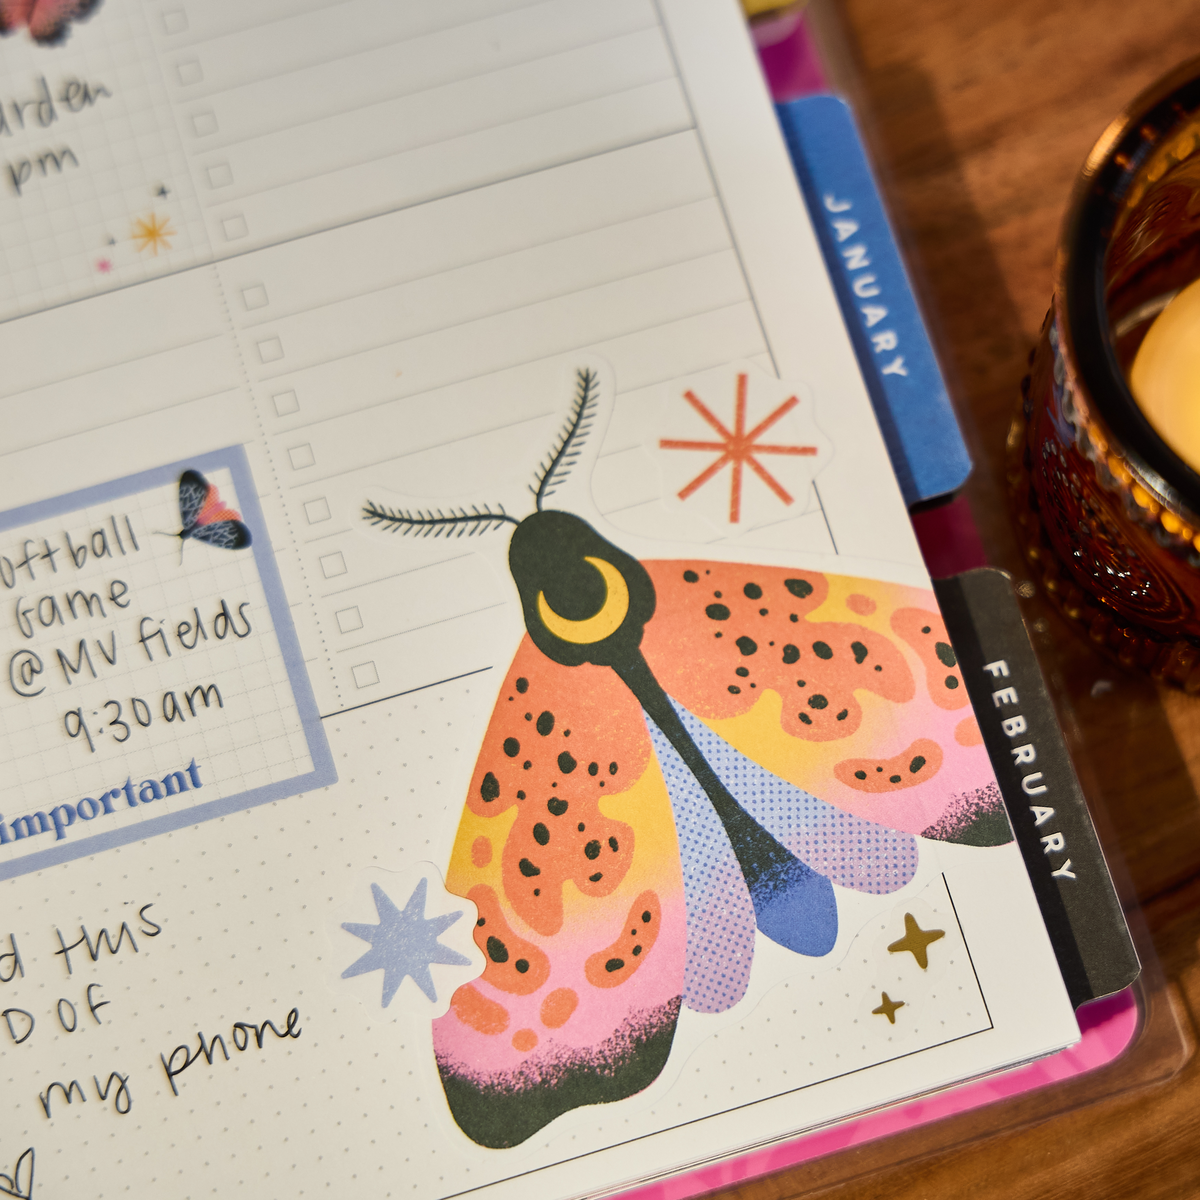 arden
pm
JANUARY
oftball
Game
@ MV fields
9:30am
important
FEBRUARY
d this
D OF
my phone